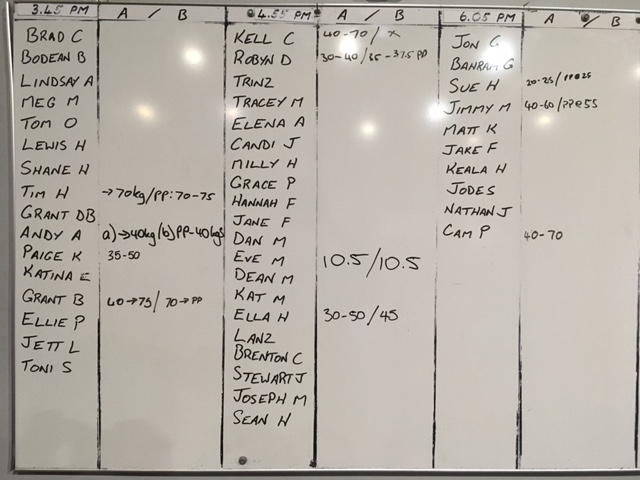 3.45 PM A / B
BRAD C
BODEAN B
LINDSAY A
MEG M
TOM O
LEWIS H
SHANE H
TIM H →70kg/PP: 70-75
GRANT DB
ANDY A a)→40kg(b)PP-40kgs
PAIGE K 35-50
KATINA E
GRANT B 40→75/ 70→PP
ELLIE P
JETT L
TONI S
4.55 PM A / B
KELL C 40-70 / x
ROBYN D 30-40/35-37.5 PP
TRINZ
TRACEY M
ELENA A
CANDI J
MILLY H
GRACE P
HANNAH F
JANE F
DAN M
EVE M 10.5/10.5
DEAN M
KAT M
ELLA H 30-50/45
LANZ
BRENTON C
STEWART J
JOSEPH M
SEAN H
6.05 PM A / B
JON G
BANRAM G
SUE H 20-25/PP@25
JIMMY M 40-60/PP@55
MATT K
JAKE F
KEALA H
JODE S
NATHAN J
CAM P 40-70